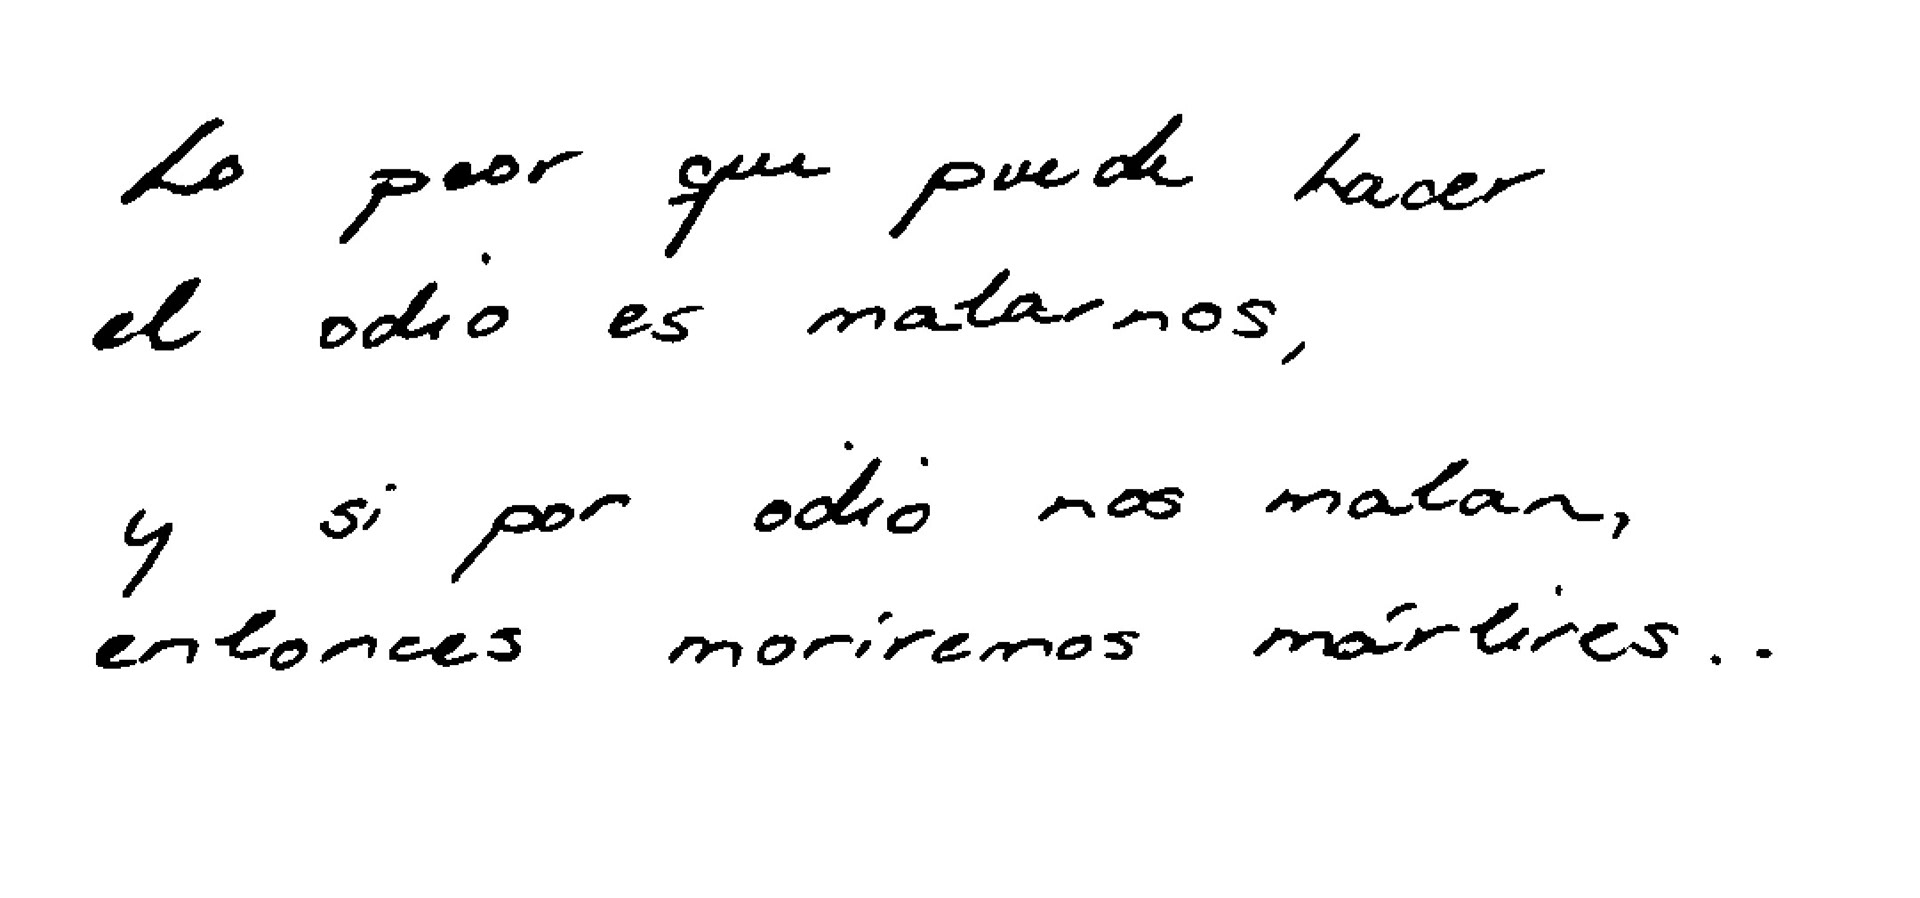 Lo peor que puede hacer
el odio es matarnos,
y si por odio nos matan,
entonces moriremos mártires..